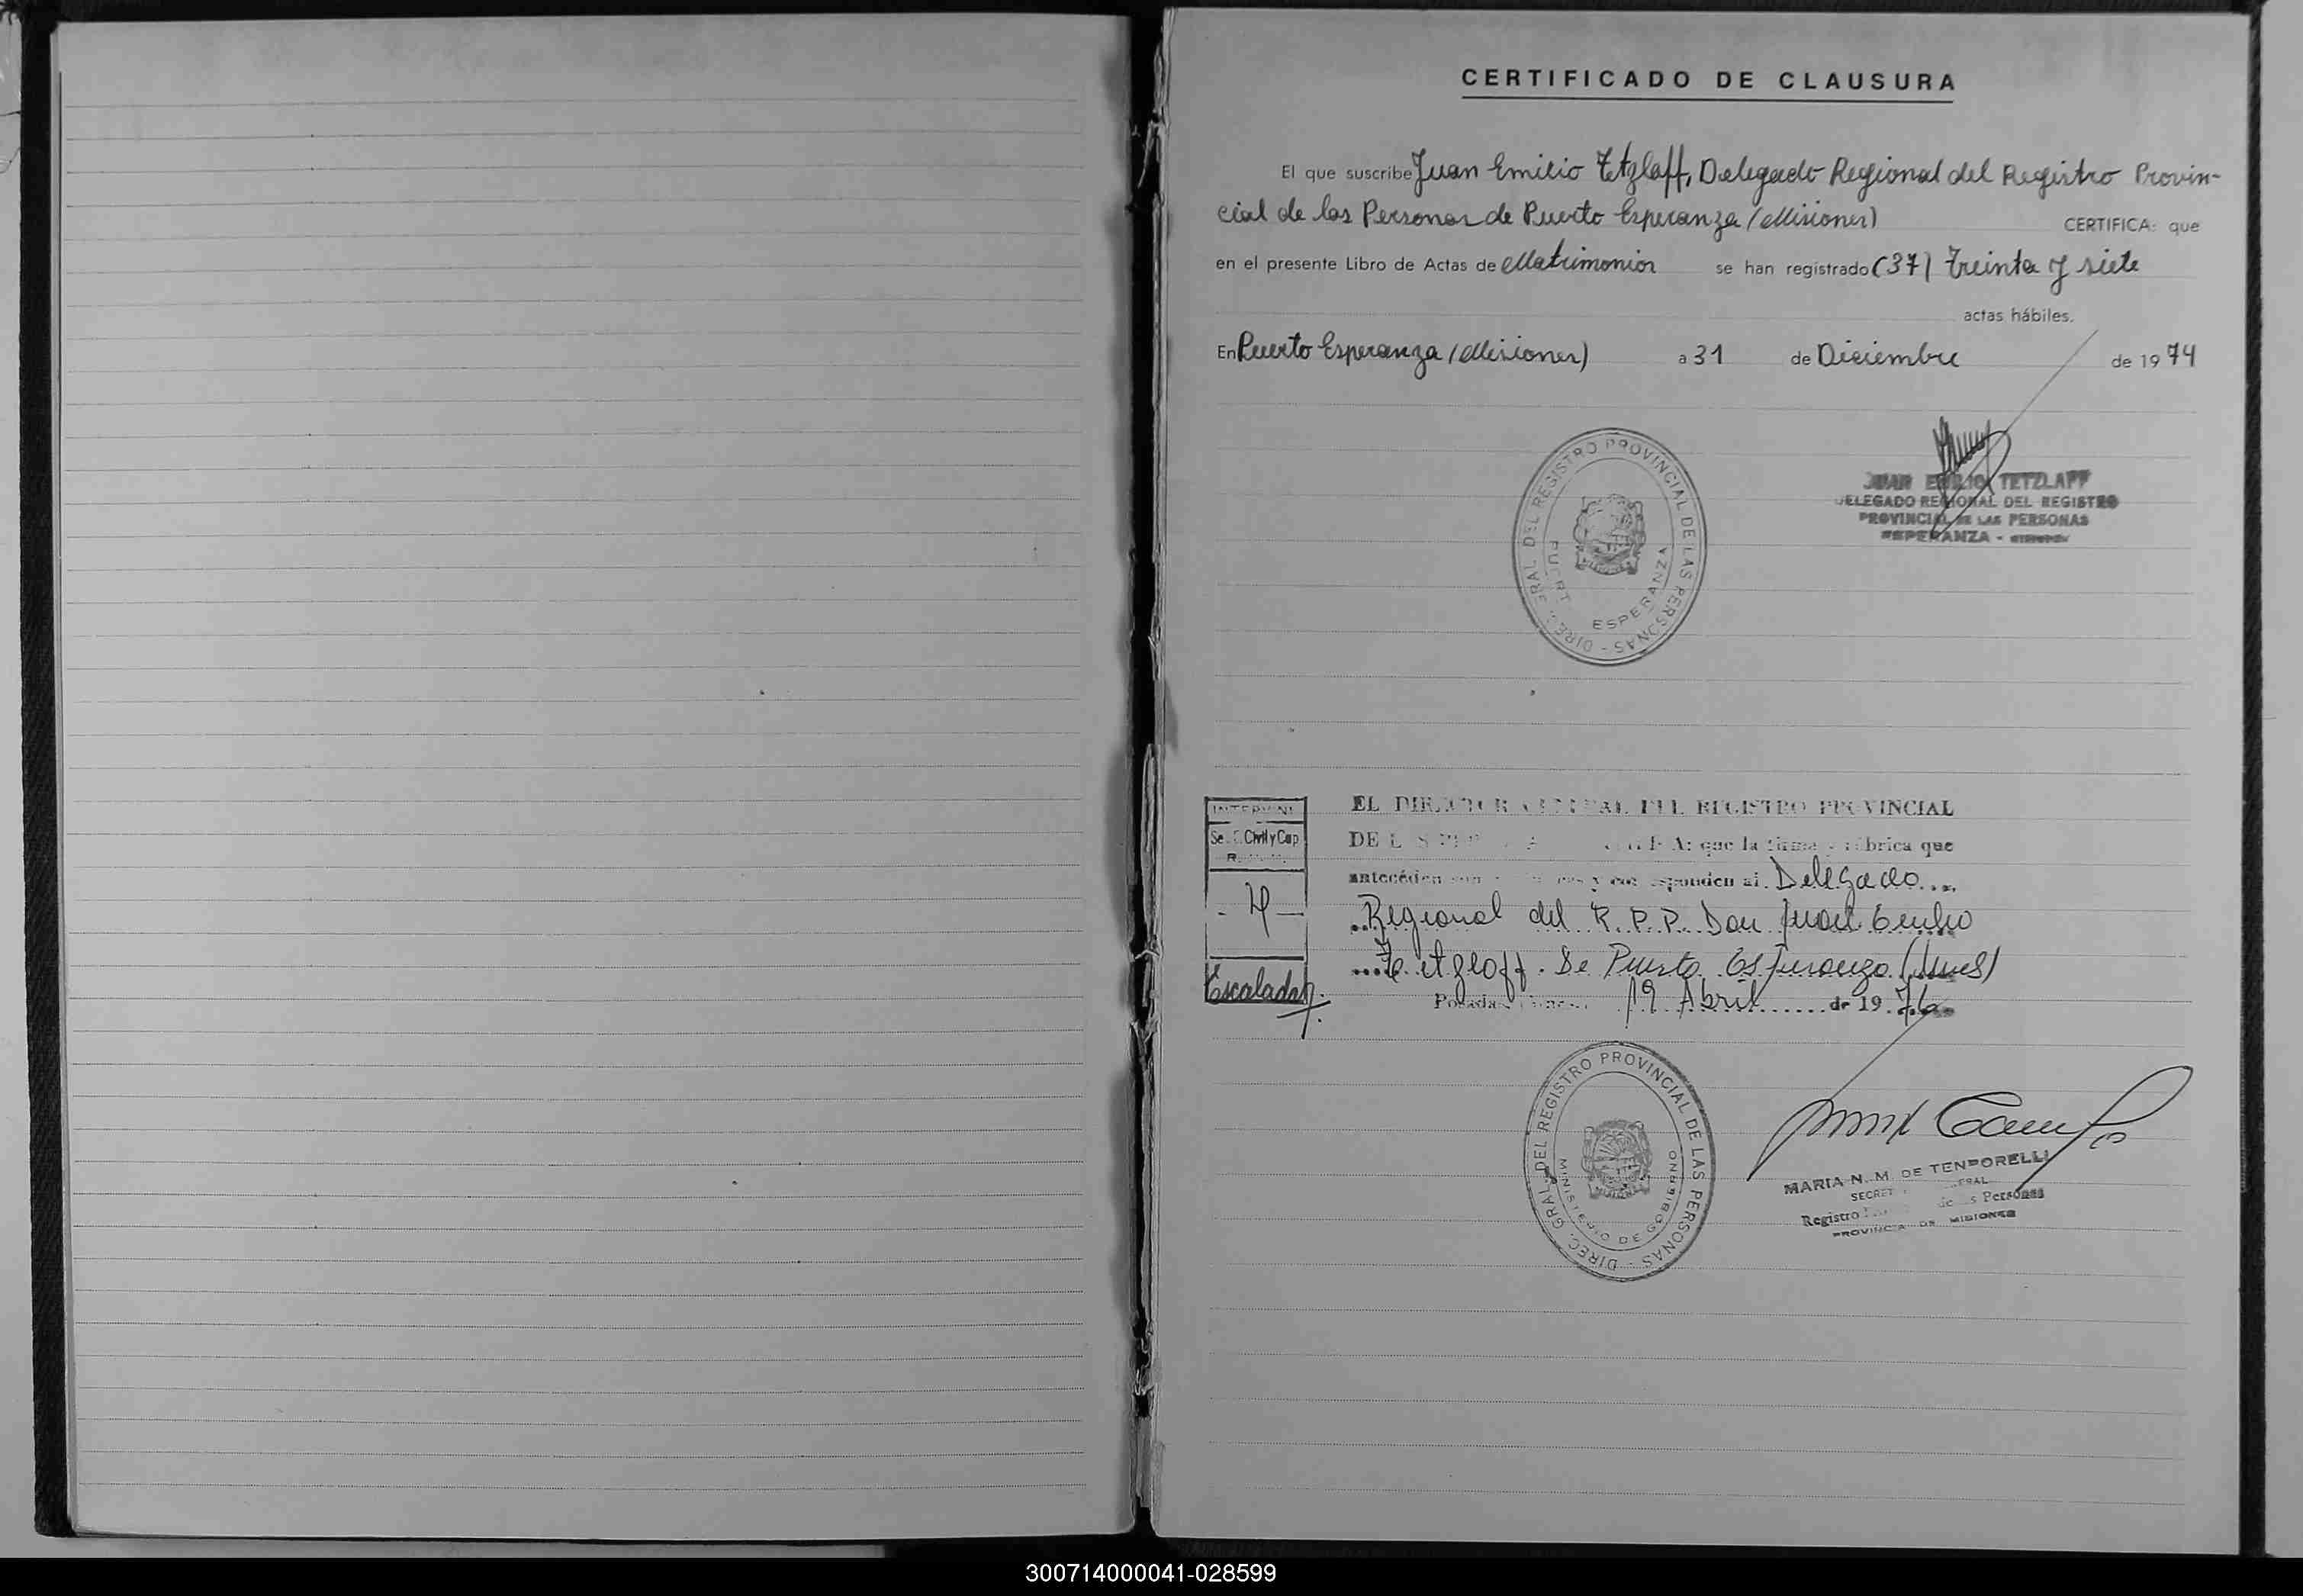 CERTIFICADO DE CLAUSURA
El que suscribe Juan Emilio Tetzlaff, Delegado Regional del Registro Provin-
cial de las Personas de Puerto Esperanza (Misiones) CERTIFICA: que
en el presente Libro de Actas de Matrimonios se han registrado (37) treinta y siete
actas hábiles.
En Puerto Esperanza (Misiones) a 31 de Diciembre de 1974
DIREC. GRAL. DEL REGISTRO PROVINCIAL DE LAS PERSONAS -
ESPERANZA
JUAN EMILIO TETZLAFF
DELEGADO REGIONAL DEL REGISTRO
PROVINCIAL DE LAS PERSONAS
ESPERANZA -
EL DIRECTOR GENERAL DEL REGISTRO PROVINCIAL
DE que la firma y rúbrica que
anteceden son y corresponden al Delegado
Regional del R.P.P. Don Juan Emilio
Tetzlaff. De Puerto Esperanza (Mnes)
Posadas 19 Abril de 1976
INTERVINO
Civil y Cap
Escalada
DIREC. GRAL. DEL REGISTRO PROVINCIAL DE LAS PERSONAS -
MINISTERIO DE GOBIERNO
MARIA N. M. DE TEMPORELLI
Registro de las Personas
PROVINCIA DE MISIONES
300714000041-028599